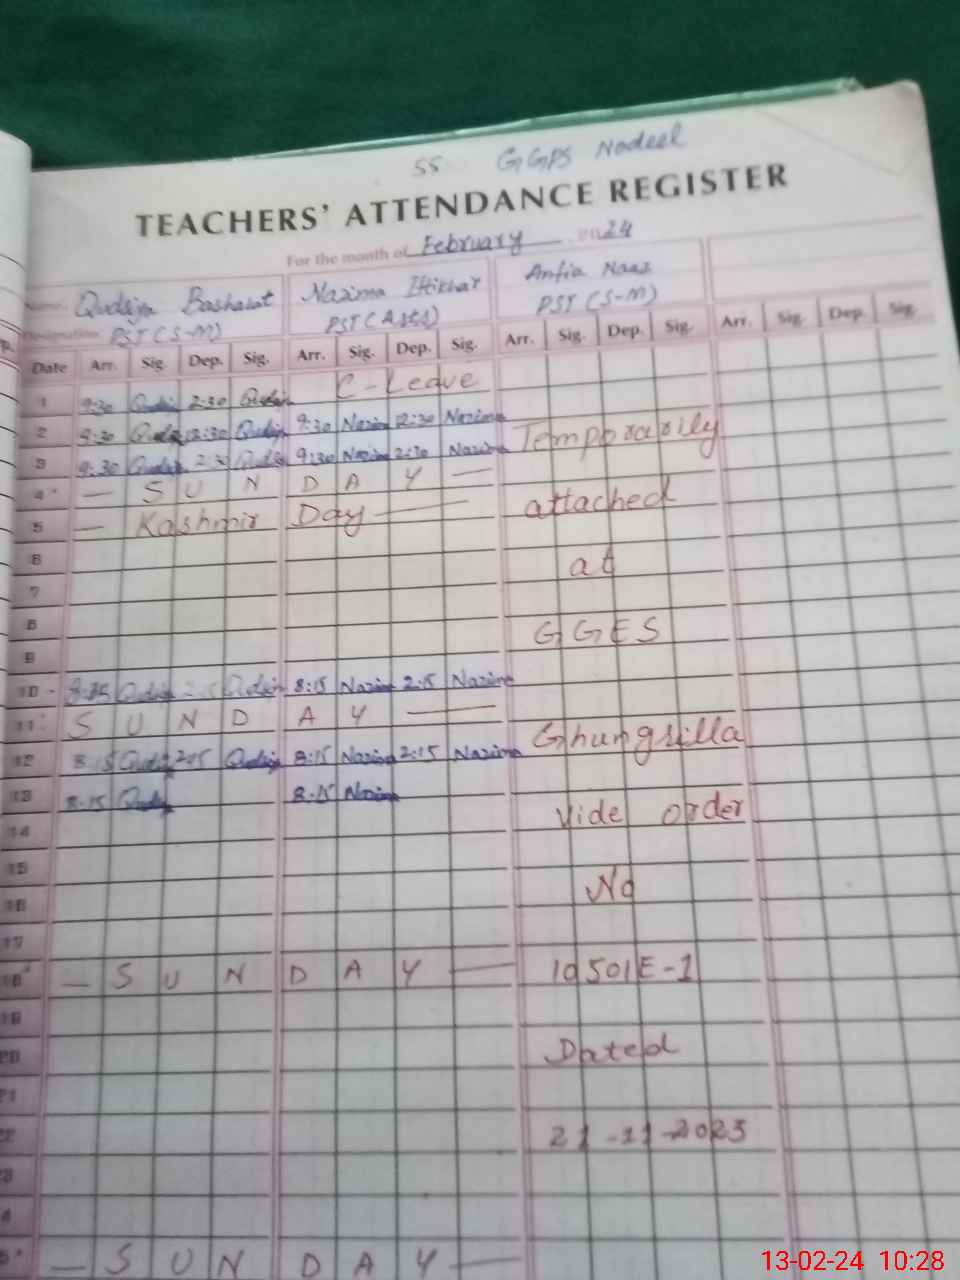 55 GGPS Nadeel
TEACHERS' ATTENDANCE REGISTER
For the month of February 24
Name. Qudsja Basharat Nazima Iftikhar Anfia Naaz
Designation PST (S-M) PST (A) PST (S-M)
Date Arr. Sig. Dep. Sig. Arr. Sig. Dep. Sig. Arr. Sig. Dep. Sig. Arr. Sig. Dep. Sig.
1 9:30 Qudsja 2:30 Qudsja C-Leave
2 9:30 Qudsja 12:30 Qudsja 9:30 Nazima 12:30 Nazima Temporarily
3 9:30 Qudsja 2:30 Qudsja 9:30 Nazima 2:30 Nazima
4 — S U N D A Y —
5 — Kashmir Day — attached
6
7 at
8
9 GGES
10 8:15 Qudsja 2:15 Qudsja 8:15 Nazima 2:15 Nazima
11 S U N D A Y —
12 8:15 Qudsja 2:15 Qudsja 8:15 Nazima 2:15 Nazima Ghungrilla
13 8-15 Qudsja 8-15 Nazima
14 Vide order
15
16 No
17
18 — S U N D A Y — 10501E-1
19
20 Dated
21
22 21-11-2023
23
4
5 — S U N D A Y —
13-02-24 10:28